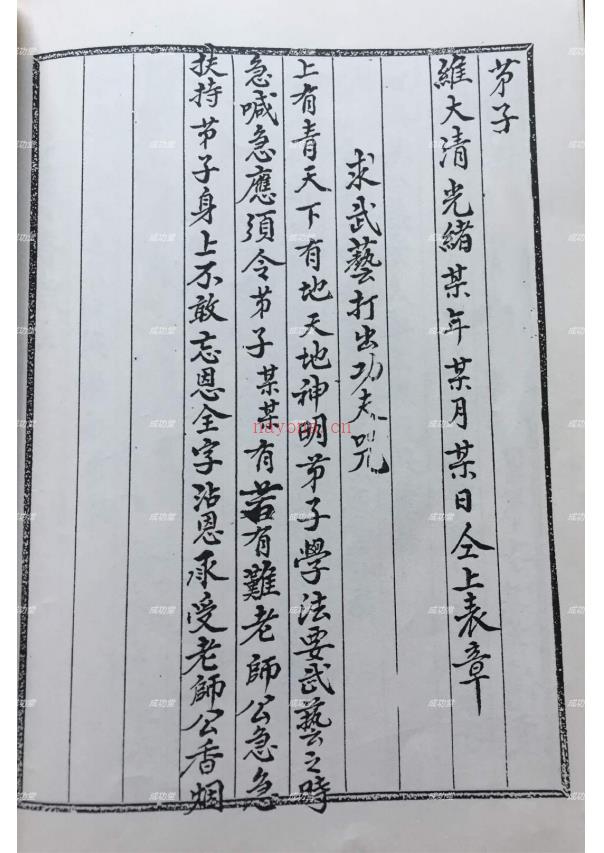 弟子
維大清光緒某年某月某日仝上表章
求武藝打出功夫咒
上有青天下有地天地神明弟子學法要武藝之時
急喊急應須令弟子某某有若有難老師公急急
扶持弟子身上不敢忘恩全字沾恩承受老師公香烟
nayona.cn
成功堂